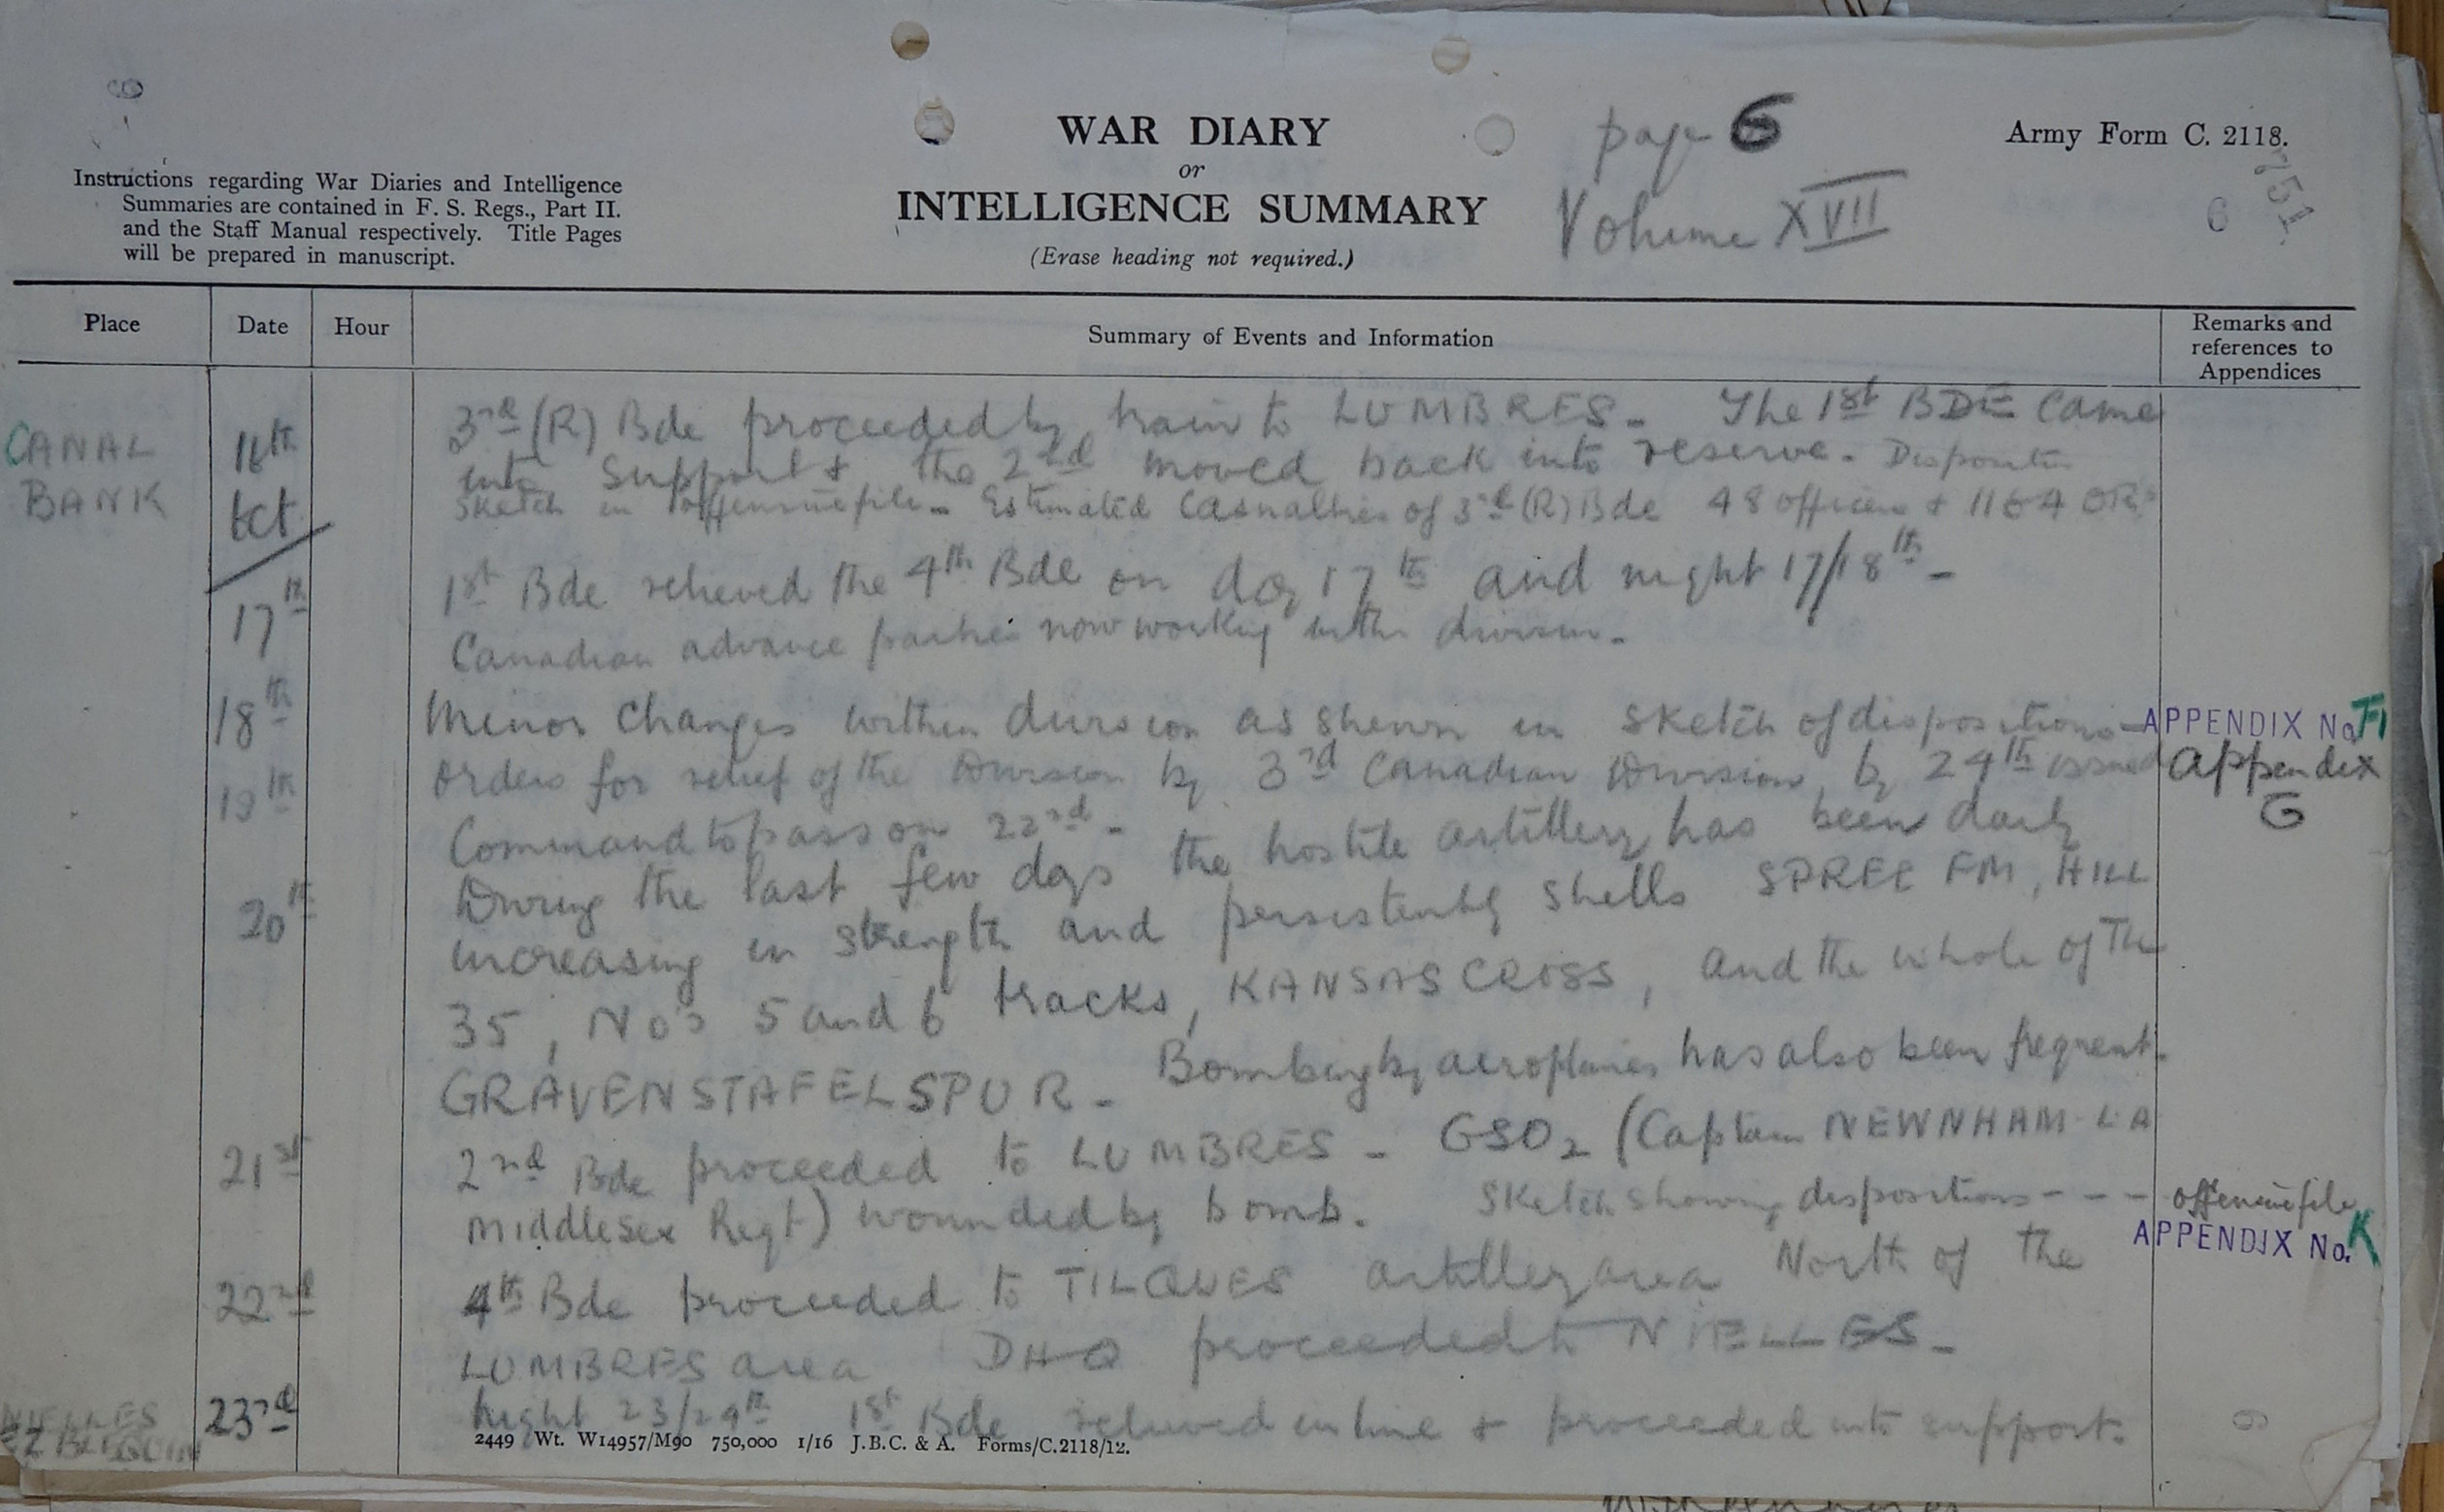 WAR DIARY
or
INTELLIGENCE SUMMARY
(Erase heading not required.)
page 6
Volume XVII
Army Form C. 2118.
6
Instructions regarding War Diaries and Intelligence
Summaries are contained in F. S. Regs., Part II.
and the Staff Manual respectively. Title Pages
will be prepared in manuscript.
Place Date Hour Summary of Events and Information Remarks and references to Appendices
CANAL BANK
16th Oct
3rd (R) Bde proceeded by train to LUMBRES - The 1st BDE came
into support & the 2nd moved back into reserve. Disposition
sketch in offensive file - Estimated Casualties of 3rd (R) Bde 48 officers & 1164 ORs
17th 1st Bde relieved the 4th Bde on day 17th and night 17/18th -
Canadian advance parties now working with division -
18th Minor changes within division as shewn in sketch of dispositions - APPENDIX No. F1
19th Orders for relief of the Division by 3rd Canadian Division by 24th issued Appendix G
Command to pass on 22nd -
20th During the last few days the hostile artillery has been daily
increasing in strength and persistently shells SPREE FM, HILL
35, No's 5 and 6 tracks, KANSAS CROSS, and the whole of the
GRAVENSTAFEL SPUR - Bombing by aeroplanes has also been frequent.
21st 2nd Bde proceeded to LUMBRES - GSO2 (Captain NEWNHAM LA
Middlesex Regt) wounded by bomb. Sketch showing dispositions - - - offensive file
APPENDIX No. K
22nd 4th Bde proceeded to TILQUES artillery area North of the
LUMBRES area DHQ proceeded to NIELLES -
NIELLES
23rd Night 23/24th 1st Bde relieved in line & proceeded into support.
2449 Wt. W14957/M90 750,000 1/16 J.B.C. & A. Forms/C.2118/12.